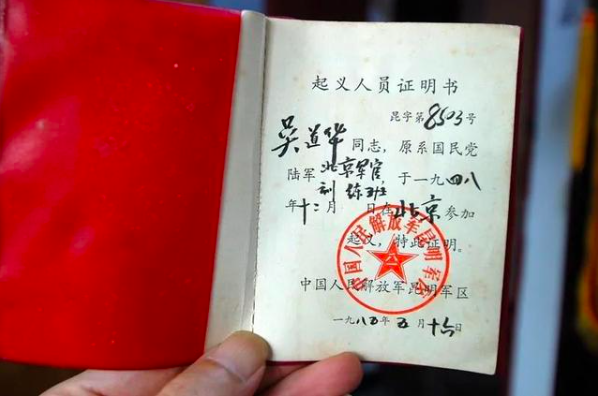 起义人员证明书
昆字第8503号
吴道华同志，原系国民党
陆军北京军官训练班，于一九四八
年十二月 日在北京参加
起义，特此证明。
中国人民解放军昆明军区
一九八五年五月十六日
中国人民解放军昆明军区
八一